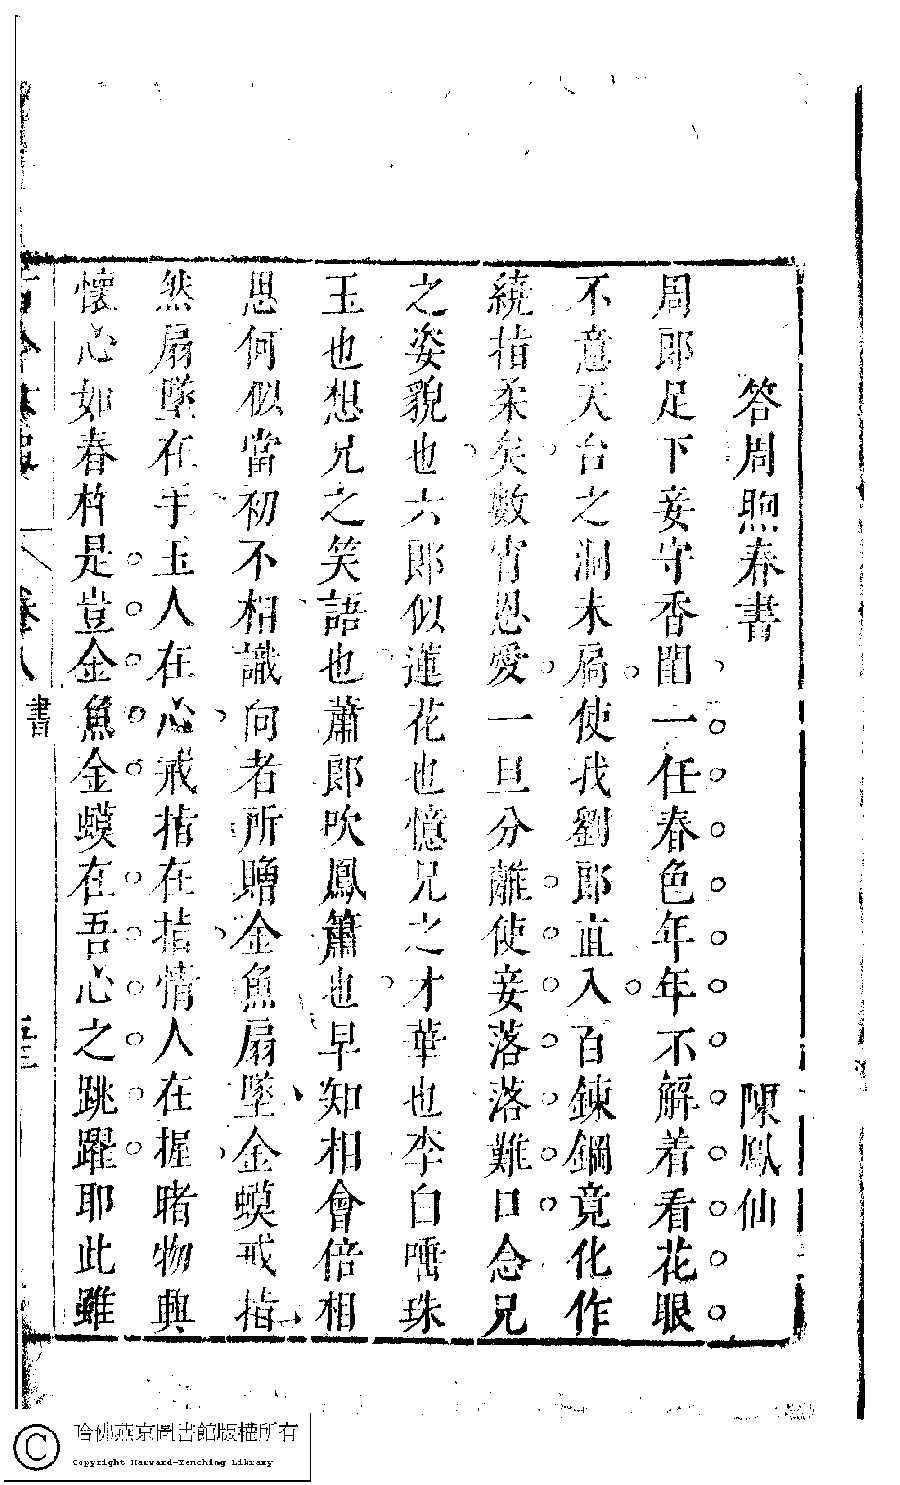 答周煦春書　陳鳳仙
周郎足下妾守香閨一任春色年年不解着看花眼
不意天台之洞未扃使我劉郎直入百鍊鋼竟化作
繞指柔矣數宵恩愛一旦分離使妾落落難口念兄
之姿貌也六郎似蓮花也憶兄之才華也李白唾珠
玉也想兄之笑語也蕭郎吹鳳簫也早知相會倍相
思何似當初不相識向者所贈金魚扇墜金蟆戒指
然扇墜在手玉人在心戒指在指情人在握睹物興
懷心如春杵是豈金魚金蟆在吾心之跳躍耶此雖
卷八
書
哈佛燕京圖書館版權所有
Copyright Harvard-Yenching Library